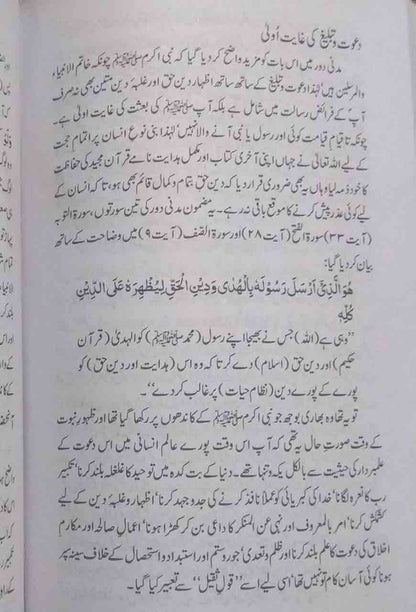 دعوت و تبلیغ کی غایت اُولیٰ
مدنی دور میں اس بات کو مزید واضح کر دیا گیا کہ نبی اکرم ﷺ چونکہ خاتم الانبیاء
والمرسلین ہیں لہٰذا دعوت و تبلیغ کے ساتھ ساتھ اظہارِ دین حق اور غلبۂ دین متین بھی نہ صرف
آپ کے فرائضِ رسالت میں شامل ہے بلکہ آپ ﷺ کی بعثت کی غایت اولیٰ ہے۔
چونکہ تا قیامِ قیامت کوئی اور رسول یا نبی آنے والا نہیں، لہٰذا بنی نوع انسان پر اتمامِ حجت
کے لیے اللہ تعالیٰ نے جہاں اپنی آخری کتاب اور مکمل ہدایت نامے قرآن مجید کی حفاظت
کا خود ذمہ لیا وہاں یہ بھی ضروری قرار دیا کہ دین حق بتمام و کمال قائم بھی ہو، تاکہ انسان کے
لیے کوئی عذر پیش کرنے کا موقع باقی نہ رہے۔ یہ مضمون مدنی دور کی تین سورتوں، سورۃ التوبہ
(آیت ۳۳) سورۃ الفتح (آیت ۲۸) اور سورۃ الصّف (آیت ۹) میں وضاحت کے ساتھ
بیان کر دیا گیا:
هُوَ الَّذِیْۤ اَرْسَلَ رَسُوْلَهٗ بِالْهُدٰی وَدِیْنِ الْحَقِّ لِیُظْهِرَهٗ عَلَی الدِّیْنِ
كُلِّهٖ
”وہی ہے (اللہ) جس نے بھیجا اپنے رسول (محمد ﷺ) کو الہدیٰ (قرآن
حکیم) اور دین حق (اسلام) دے کر تا کہ وہ اس (ہدایت اور دین حق) کو
پورے کے پورے دین (نظامِ حیات) پر غالب کر دے“۔
تو یہ تھا وہ بھاری بوجھ جو نبی اکرم ﷺ کے کاندھوں پر رکھا گیا تھا اور ظہورِ نبوت
کے وقت صورتِ حال یہ تھی کہ آپ اس وقت پورے عالم انسانی میں اس دعوت کے
علمبردار کی حیثیت سے بالکل یکہ و تنہا تھے۔ دنیا کے بت کدہ میں توحید کا غلغلہ بلند کرنا، تکبیر
رب کا نعرہ لگانا، خدا کی کبریائی کو عملاً نافذ کرنے کی جدوجہد کرنا، اظہار و غلبۂ دین کے لیے
کشمکش کرنا، امر بالمعروف اور نہی عن المنکر کا داعی بن کر کھڑا ہونا، اعمالِ صالحہ اور مکارمِ
اخلاق کی دعوت کا علم بلند کرنا اور ظلم و تعدی، جور و ستم اور استبداد و استحصال کے خلاف سینہ سپر
ہونا کوئی آسان کام تو نہیں تھا، اسی لیے اسے ”قولِ ثقیل“ سے تعبیر کیا گیا۔